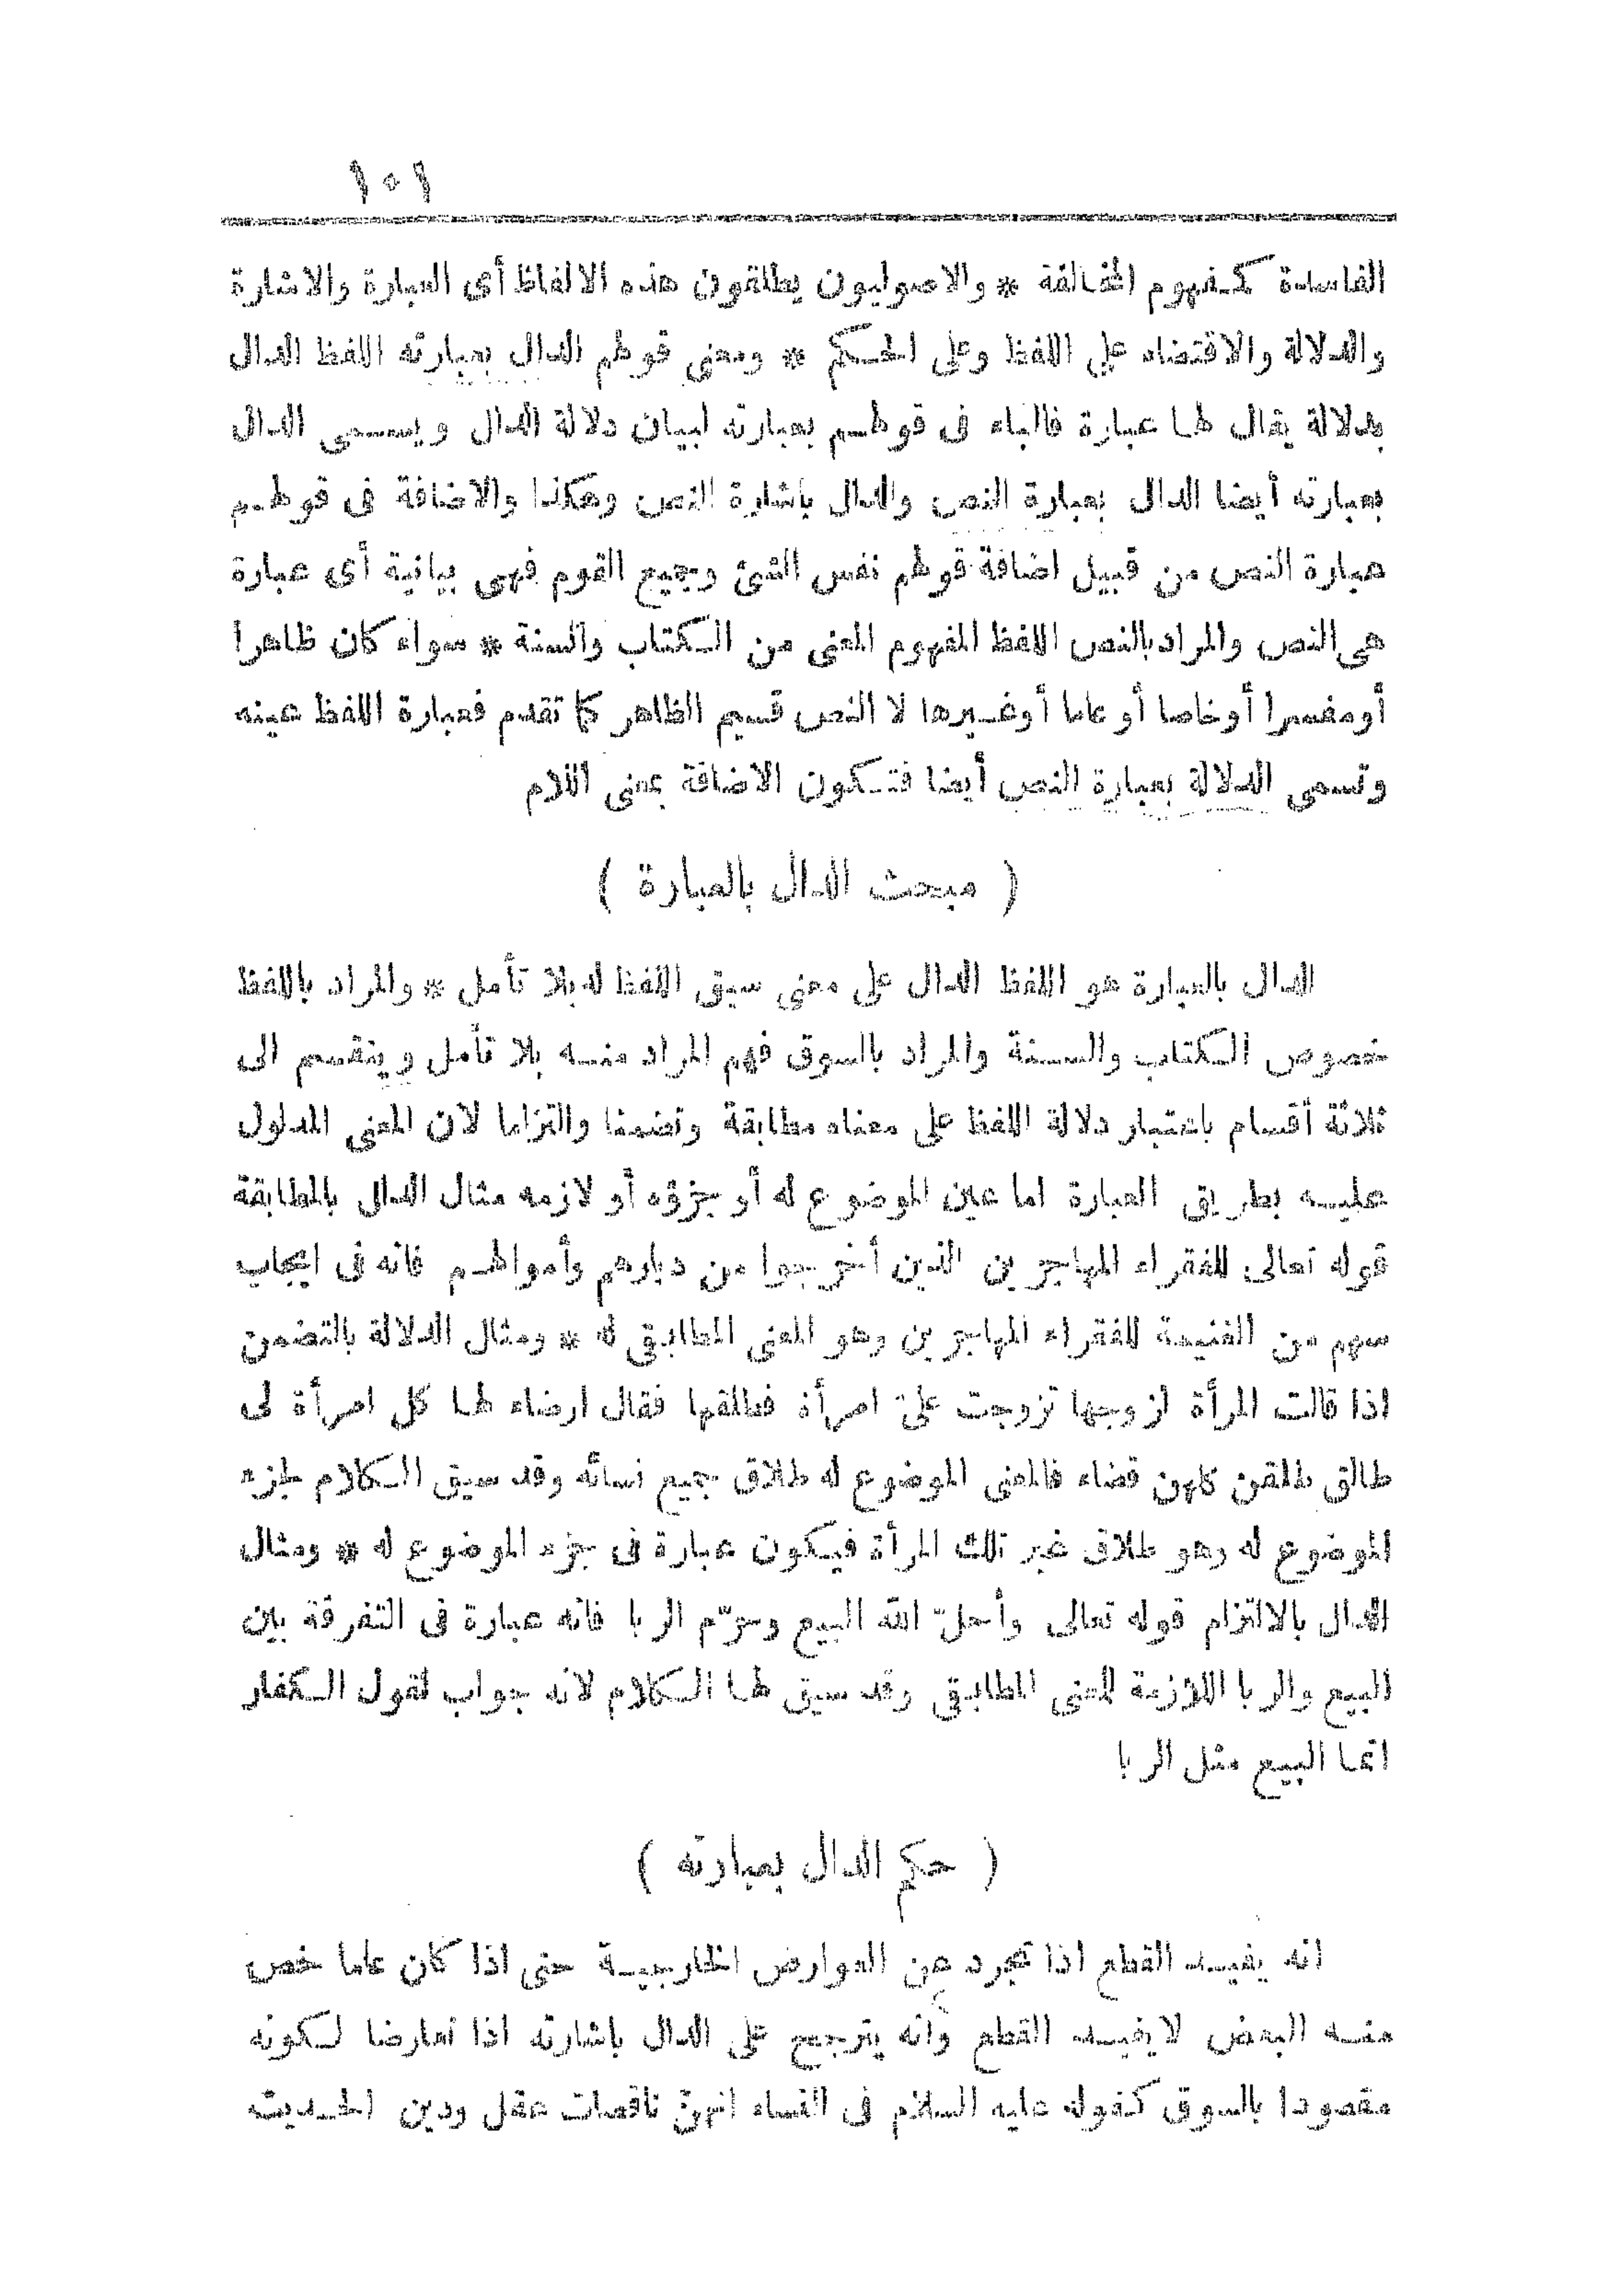 ١٠١
الفاسدة كمفهوم المخالفة * والاصوليون يطلقون هذه الالفاظ أى العبارة والاشارة
والدلالة والاقتضاء على اللفظ وعلى الحكم * ومعنى قولهم الدال بعبارته اللفظ الدال
بدلالة يقال لها عبارة فالباء فى قولهم بعبارته لبيان دلالة الدال ويسمى الدال
بعبارته أيضا الدال بعبارة النص والدال باشارة النص وهكذا والاضافة فى قولهم
عبارة النص من قبيل اضافة قولهم نفس الشئ وجميع القوم فهى بيانية أى عبارة
هى النص والمراد بالنص اللفظ المفهوم المعنى من الكتاب والسنة * سواء كان ظاهرا
أو مفسرا أو خاصا أو عاما أو غيرها لا النص قسيم الظاهر كما تقدم فعبارة اللفظ عينه
وتسمى الدلالة بعبارة النص أيضا فتكون الاضافة بمعنى اللام
( مبحث الدال بالعبارة )
الدال بالعبارة هو اللفظ الدال على معنى سيق اللفظ له بلا تأمل * والمراد باللفظ
خصوص الكتاب والسنة والمراد بالسوق فهم المراد منه بلا تأمل وينقسم الى
ثلاثة أقسام باعتبار دلالة اللفظ على معناه مطابقة وتضمنا والتزاما لان المعنى المدلول
عليه بطريق العبارة اما عين الموضوع له أو جزؤه أو لازمه مثال الدال بالمطابقة
قوله تعالى للفقراء المهاجرين الذين أخرجوا من ديارهم وأموالهم فانه فى ايجاب
سهم من الغنيمة للفقراء المهاجرين وهو المعنى المطابقى له * ومثال الدلالة بالتضمن
اذا قالت المرأة لزوجها تزوجت علىّ امرأة فطلقها فقال ارضاء لها كل امرأة لى
طالق طلقن كلهن قضاء فالمعنى الموضوع له طلاق جميع نسائه وقد سيق الكلام لجزء
الموضوع له وهو طلاق غير تلك المرأة فيكون عبارة فى جزء الموضوع له * ومثال
الدال بالالتزام قوله تعالى وأحلّ الله البيع وحرّم الربا فانه عبارة فى التفرقة بين
البيع والربا اللازمة للمعنى المطابقى وقد سيق لها الكلام لانه جواب لقول الكفار
انما البيع مثل الربا
( حكم الدال بعبارته )
انه يفيد القطع اذا تجرد عن العوارض الخارجية حتى اذا كان عاما خص
منه البعض لا يفيد القطع وانه يترجح على الدال باشارته اذا تعارضا لكونه
مقصودا بالسوق كقوله عليه السلام فى النساء انهنّ ناقصات عقل ودين الحديث